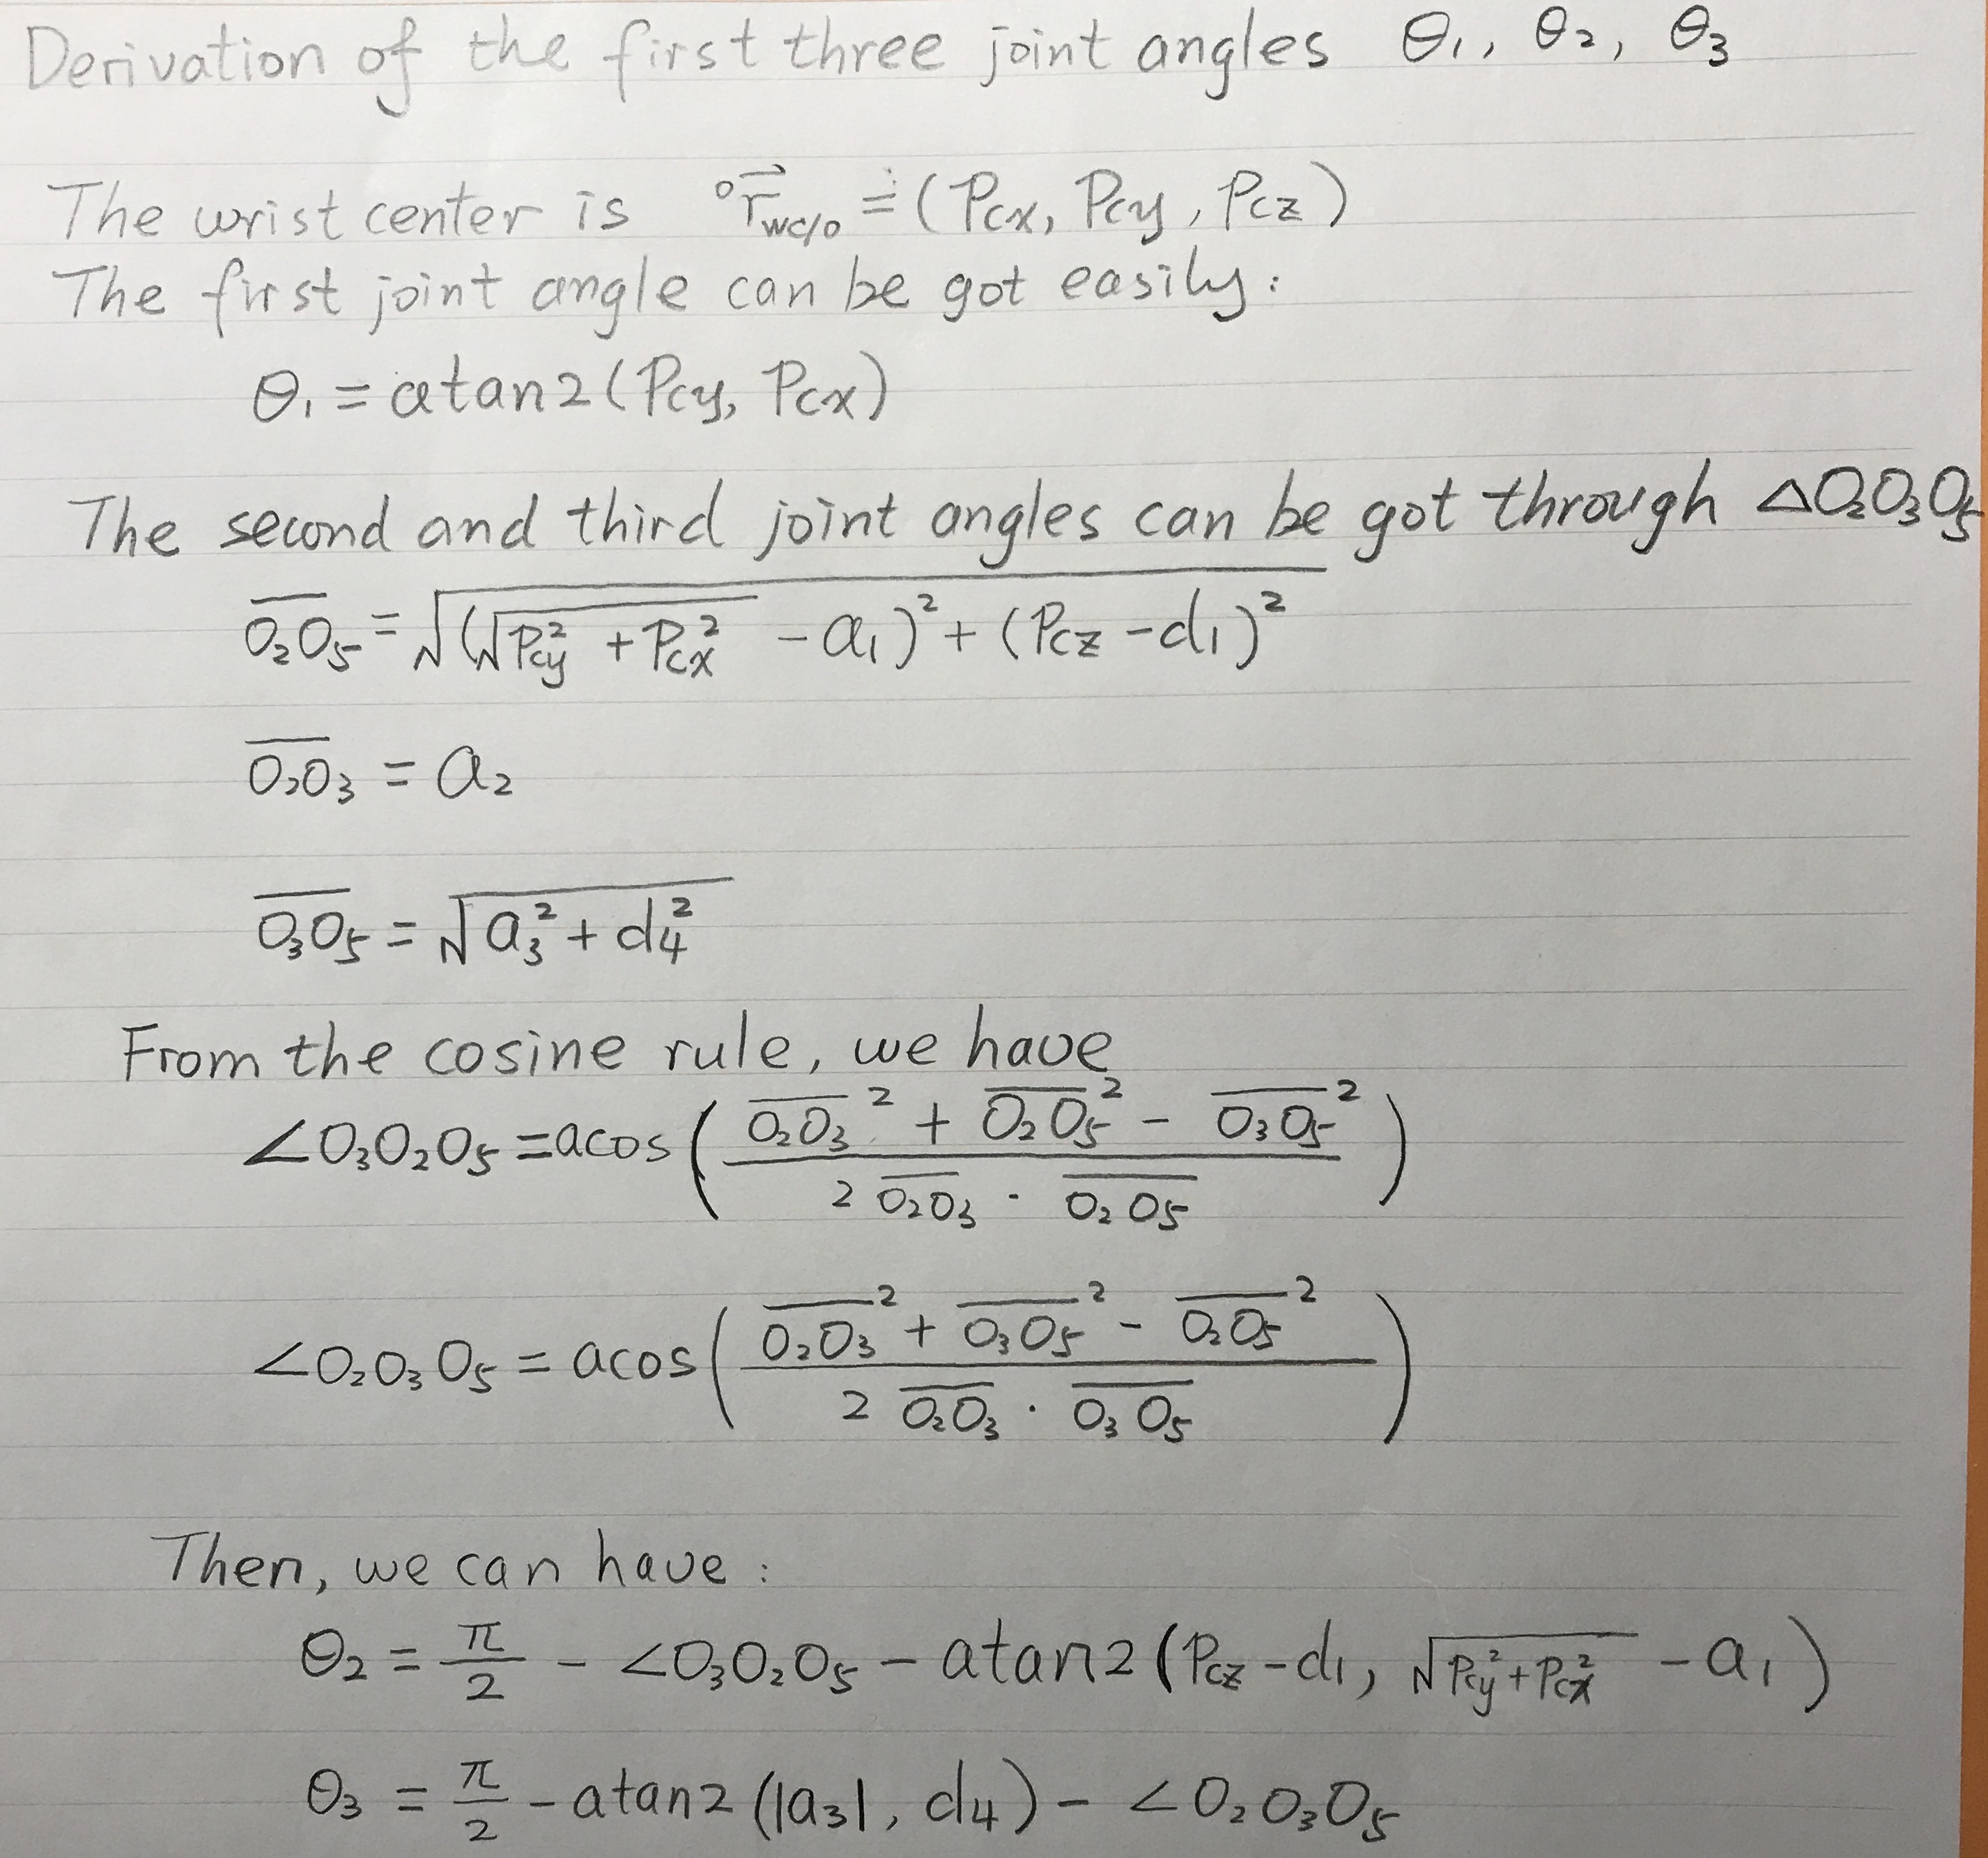 Derivation of the first three joint angles θ₁, θ₂, θ₃
The wrist center is ⁰r⃗_wc/o ≐ (Pcx, Pcy, Pcz)
The first joint angle can be got easily:
θ₁ = atan2(Pcy, Pcx)
The second and third joint angles can be got through △O₂O₃O₅
O̅₂O̅₅ = √((√(Pcy² + Pcx²) - a₁)² + (Pcz - d₁)²)
O̅₂O̅₃ = a₂
O̅₃O̅₅ = √(a₃² + d₄²)
From the cosine rule, we have
∠O₃O₂O₅ = acos((O̅₂O̅₃² + O̅₂O̅₅² - O̅₃O̅₅²) / (2 O̅₂O̅₃ · O̅₂O̅₅))
∠O₂O₃O₅ = acos((O̅₂O̅₃² + O̅₃O̅₅² - O̅₂O̅₅²) / (2 O̅₂O̅₃ · O̅₃O̅₅))
Then, we can have:
θ₂ = π/2 - ∠O₃O₂O₅ - atan2(Pcz - d₁, √(Pcy² + Pcx²) - a₁)
θ₃ = π/2 - atan2(|a₃|, d₄) - ∠O₂O₃O₅